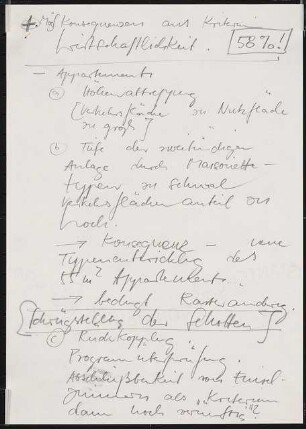 * Mögl Konsequenzen aus Kriterium
Wirtschaftlichkeit. 58%!
— Appartements
ⓐ Höhenabtreppung
[Verkehrsfläche zu Nutzfläche
zu groß]
ⓑ Tiefe der zweibündigen
Anlage durch Maisonette-
typen zu schmal
Verkehrsflächenanteil zu
hoch.
→ Konsequenz – neue
Typenentwicklung des
m² Appartements.
→ bedingt Rasteränderung.
[Schrägstellung der Schotten]?
ⓒ Rückkopplung
Programmüberprüfung.
Abschließbarkeit von Einzel-
zimmern als „Kriterium
dann noch sinnvoll"?